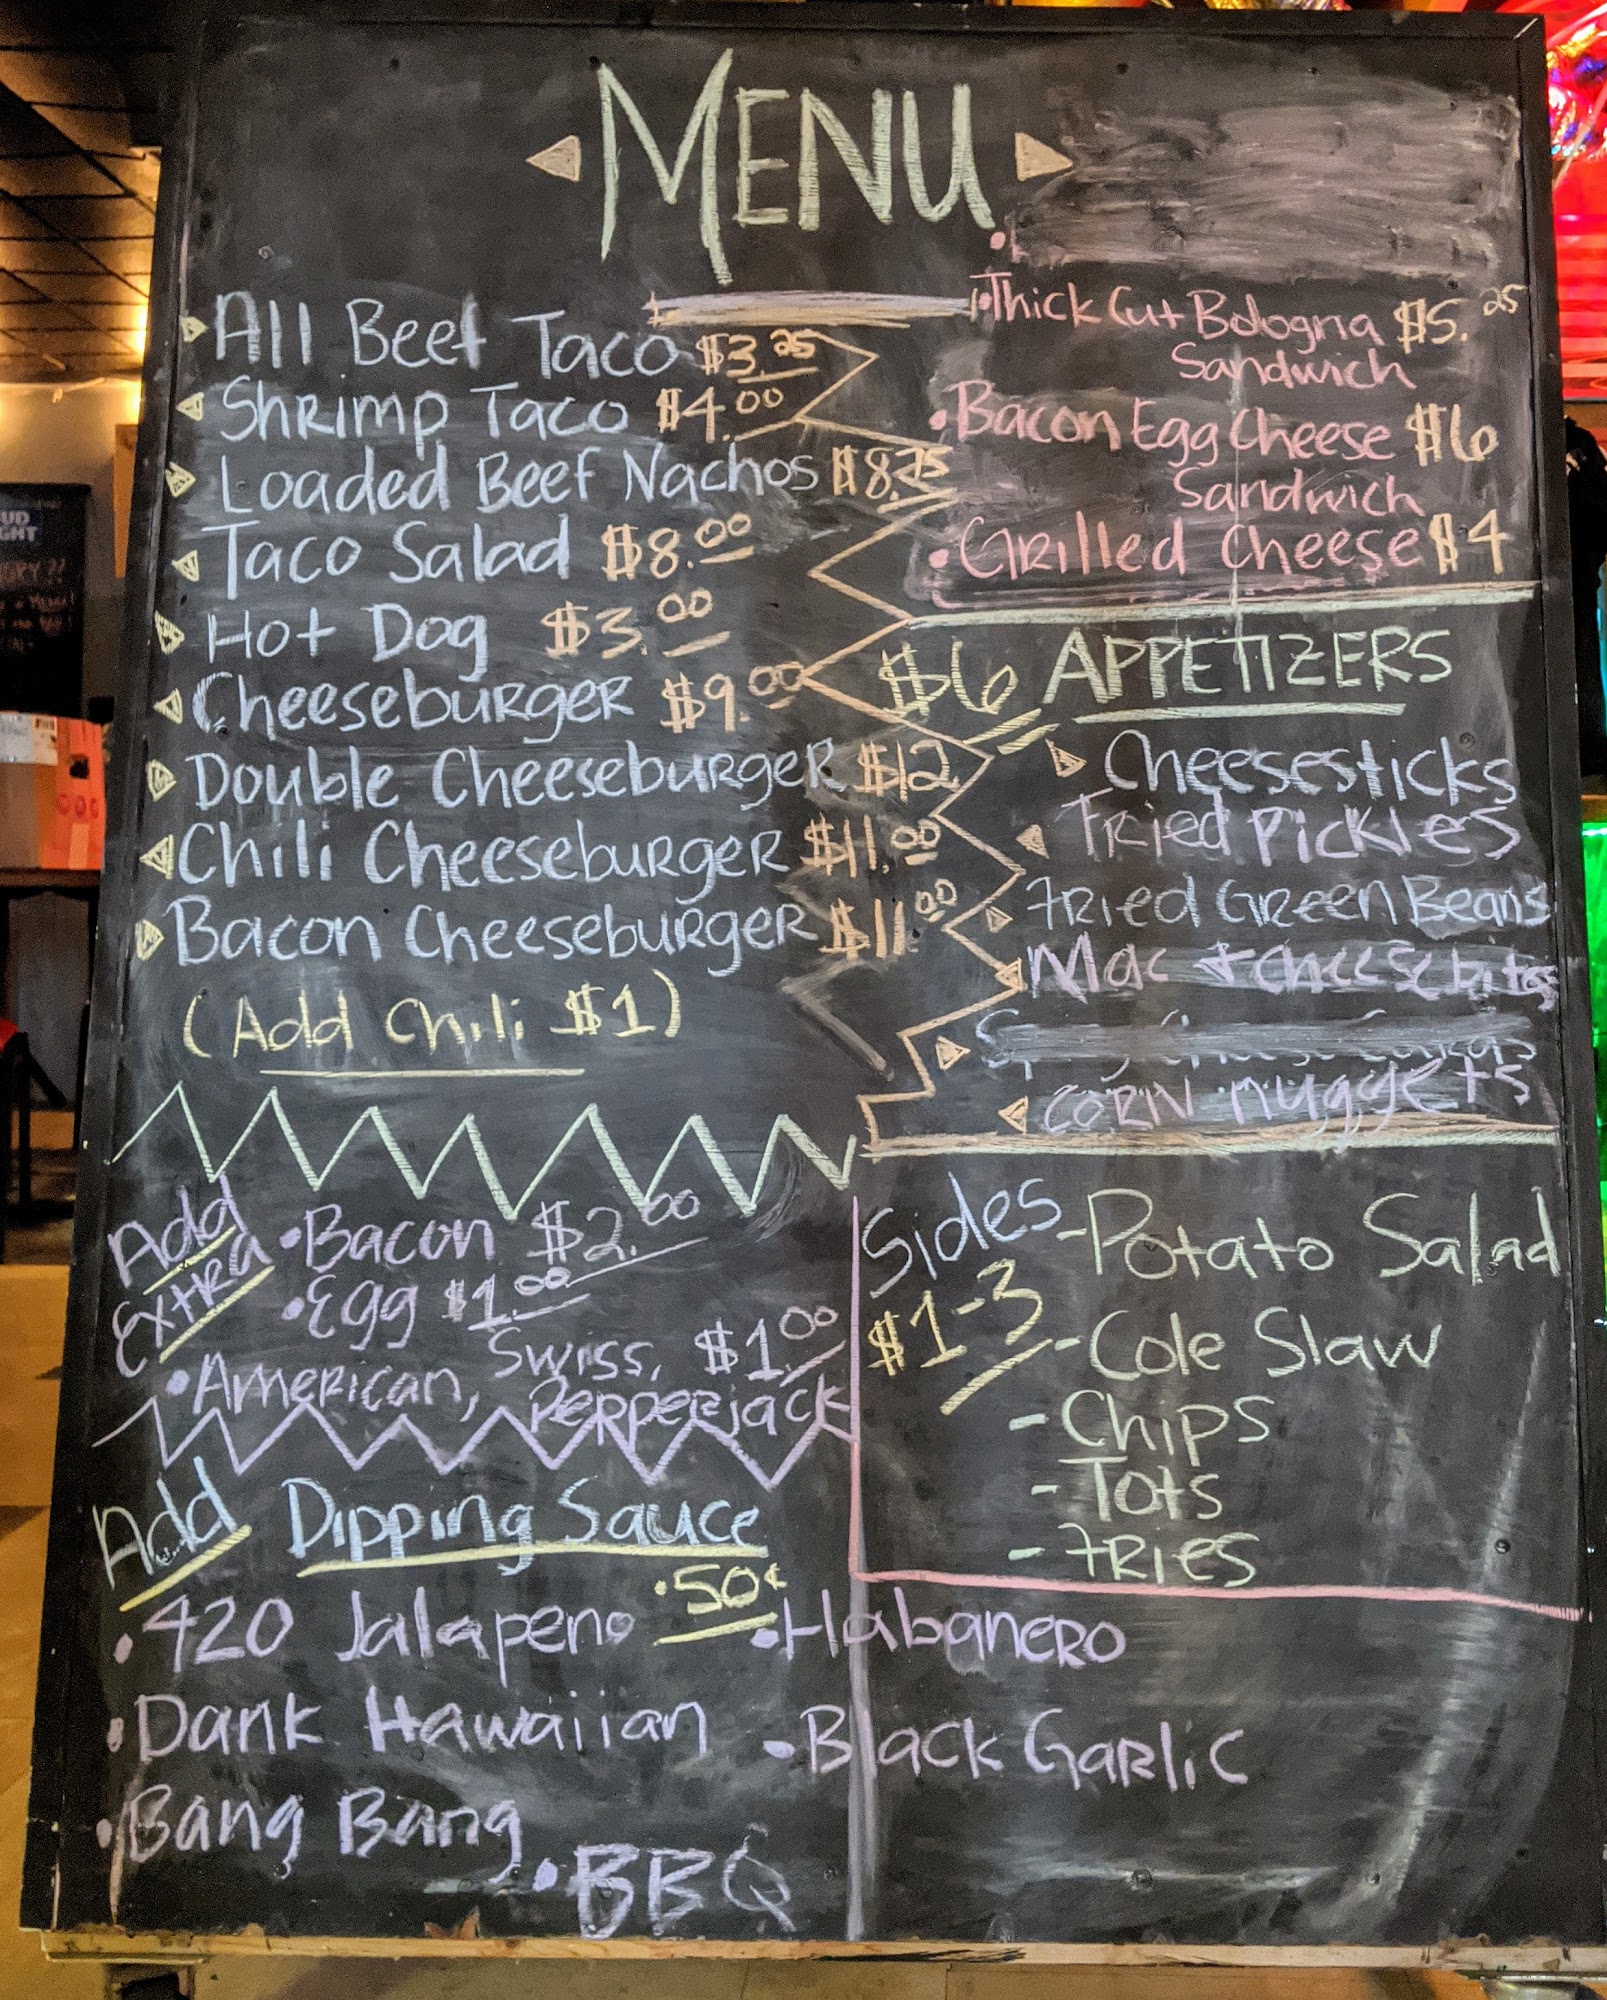 MENU
All Beef Taco $3.25
Shrimp Taco $4.00
Loaded Beef Nachos $8.75
Taco Salad $8.00
Hot Dog $3.00
Cheeseburger $9.00
Double Cheeseburger $12
Chili Cheeseburger $11.00
Bacon Cheeseburger $11.00
(Add Chili $1)
Thick Cut Bologna $5.25
Sandwich
Bacon Egg Cheese $6
Sandwich
Grilled Cheese $4
$6 APPETIZERS
Cheesesticks
Fried Pickles
Fried Green Beans
Mac + cheese bites
Corn nuggets
Add
Extra
Bacon $2.00
Egg $1.00
American, Swiss, $1.00
Perperjack
Sides
$1-3
-Potato Salad
-Cole Slaw
-Chips
-Tots
-Fries
Add Dipping Sauce
.50¢
420 Jalapeno
Habanero
Dank Hawaiian
Black Garlic
Bang Bang
BBQ